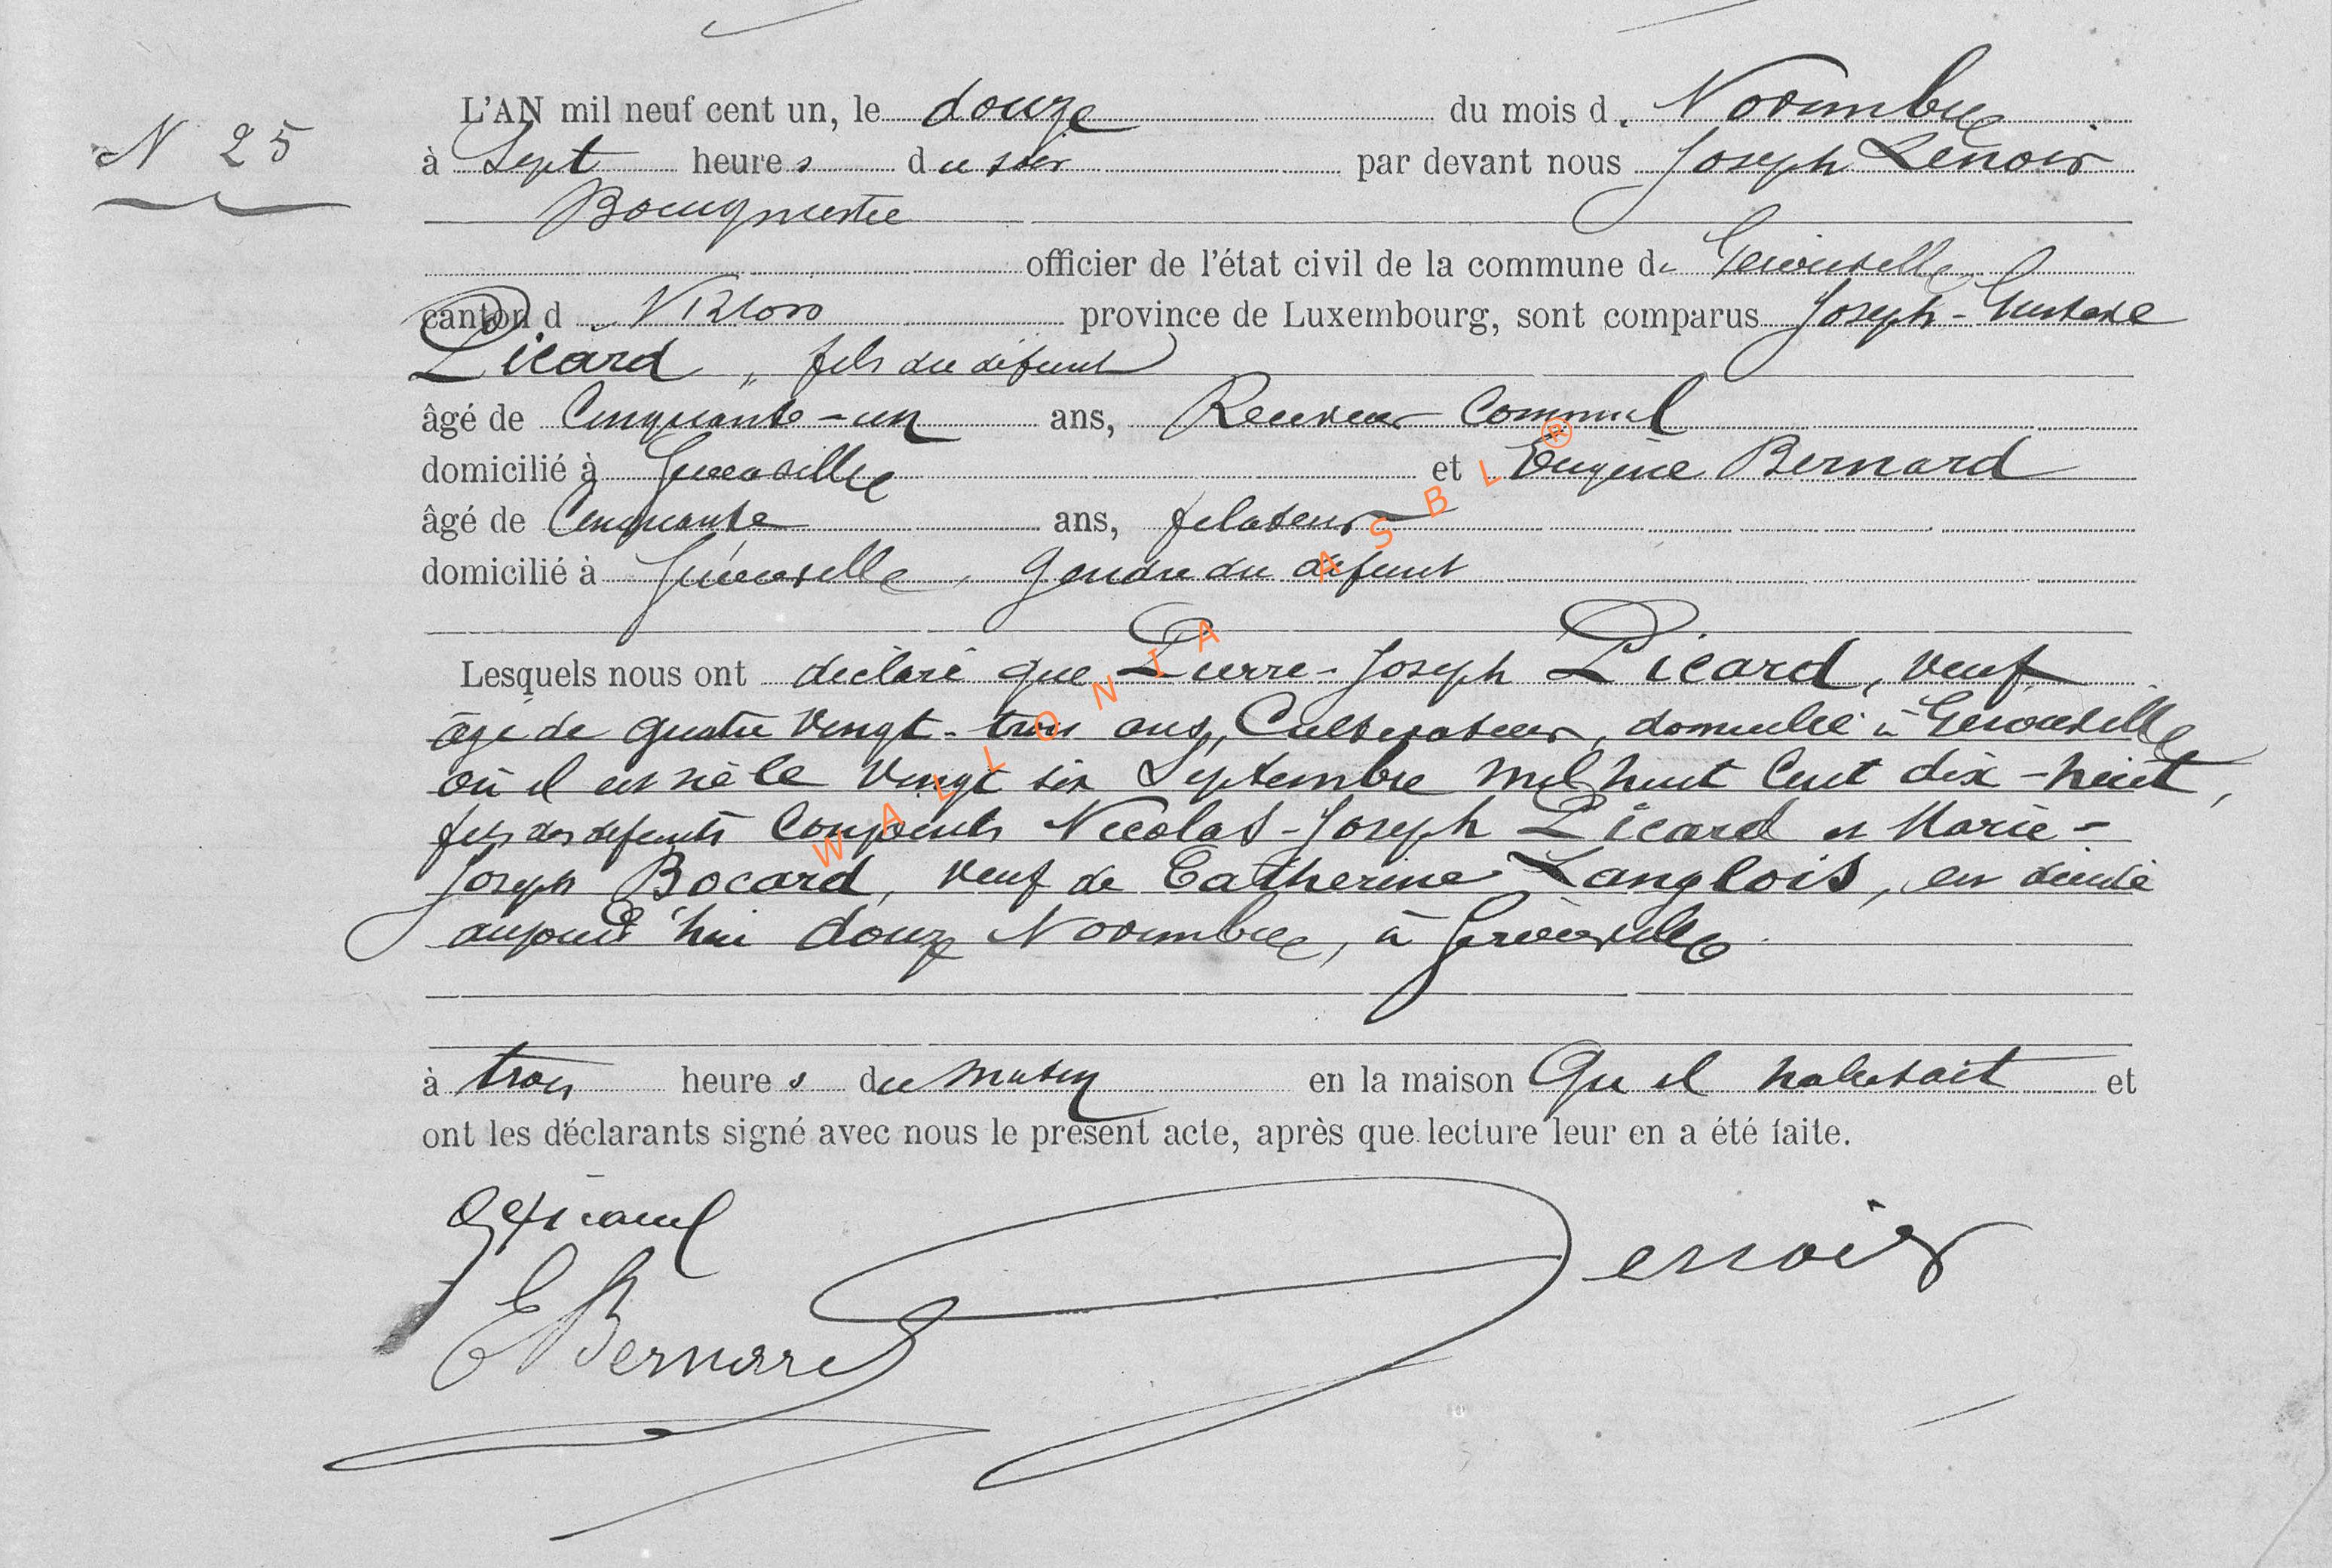 N 25
L'AN mil neuf cent un, le douze du mois de Novembre
à Sept heures du soir par devant nous Joseph Lenoir
Bourgmestre
officier de l'état civil de la commune de Gérouville
canton de Virton province de Luxembourg, sont comparus Joseph-Gustave
Picard, fils du défunt
âgé de Cinquante-un ans, Receveur Commnal
domicilié à Gérouville et Eugène Bernard
âgé de Cinquante ans, filateur
domicilié à Gérouville, gendre du défunt
Lesquels nous ont déclaré que Pierre-Joseph Picard, veuf
âgé de quatre vingt-trois ans, Cultivateur, domicilié à Gérouville
où il est né le vingt six Septembre mil huit cent dix-huit,
fils des défunts Conjoints Nicolas-Joseph Picard et Marie-
Joseph Bocard, veuf de Catherine Langlois, est décédé
aujourd'hui douze Novembre, à Gérouville.
à trois heures du matin en la maison qu'il habitait et
ont les déclarants signé avec nous le présent acte, après que lecture leur en a été faite.
GPicard
EBernard
Lenoir
WALLONIA ASBL ®